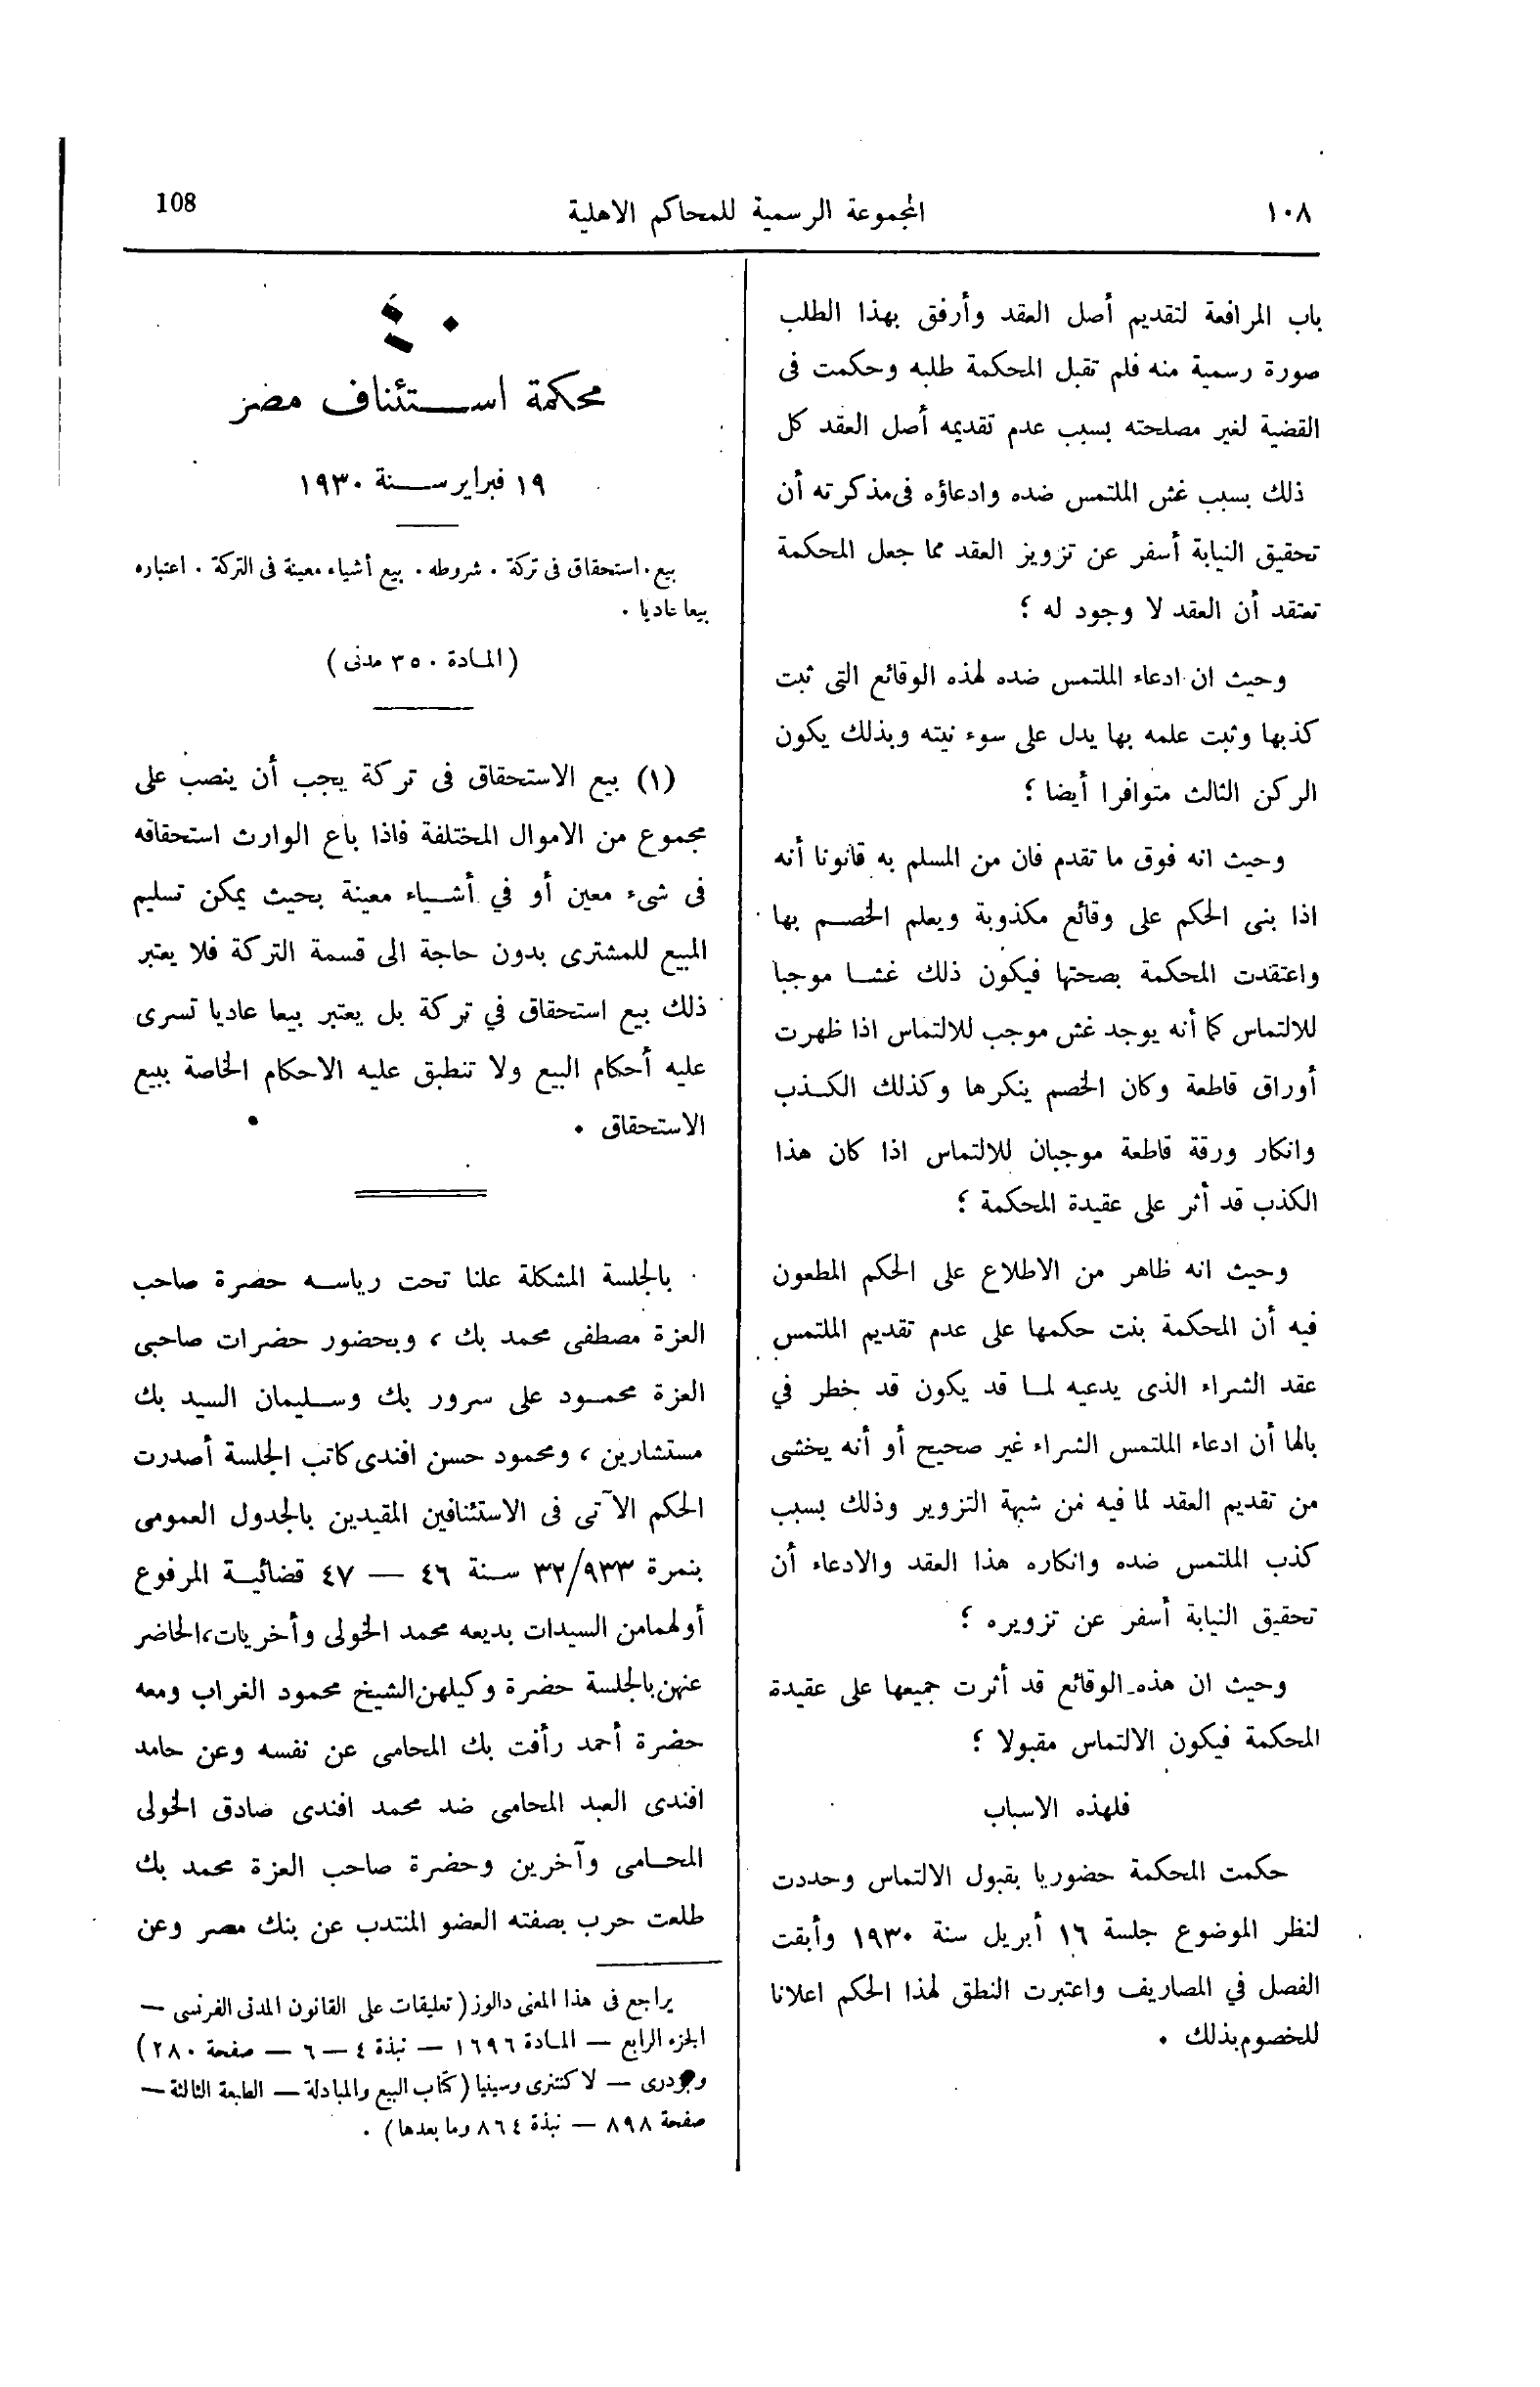 ١٠٨
المجموعة الرسمية للمحاكم الاهلية
108
باب المرافعة لتقديم أصل العقد وأرفق بهذا الطلب
صورة رسمية منه فلم تقبل المحكمة طلبه وحكمت فى
القضية لغير مصلحته بسبب عدم تقديمه أصل العقد كل
ذلك بسبب غش الملتمس ضده وادعاؤه فى مذكرته أن
تحقيق النيابة أسفر عن تزويز العقد مما جعل المحكمة
تعتقد أن العقد لا وجود له ؛
وحيث ان ادعاء الملتمس ضده لهذه الوقائع التى ثبت
كذبها وثبت علمه بها يدل على سوء نيته وبذلك يكون
الركن الثالث متوافرا أيضا ؛
وحيث انه فوق ما تقدم فان من المسلم به قانونا أنه
اذا بنى الحكم على وقائع مكذوبة ويعلم الخصم بها
واعتقدت المحكمة بصحتها فيكون ذلك غشا موجبا
للالتماس كما أنه يوجد غش موجب للالتماس اذا ظهرت
أوراق قاطعة وكان الخصم ينكرها وكذلك الكذب
وانكار ورقة قاطعة موجبان للالتماس اذا كان هذا
الكذب قد أثر على عقيدة المحكمة ؛
وحيث انه ظاهر من الاطلاع على الحكم المطعون
فيه أن المحكمة بنت حكمها على عدم تقديم الملتمس
عقد الشراء الذى يدعيه لما قد يكون قد خطر في
بالها أن ادعاء الملتمس الشراء غير صحيح أو أنه يخشى
من تقديم العقد لما فيه من شبهة التزوير وذلك بسبب
كذب الملتمس ضده وانكاره هذا العقد والادعاء أن
تحقيق النيابة أسفر عن تزويره ؛
وحيث ان هذه الوقائع قد أثرت جميعها على عقيدة
المحكمة فيكون الالتماس مقبولا ؛
فلهذه الاسباب
حكمت المحكمة حضوريا بقبول الالتماس وحددت
لنظر الموضوع جلسة ١٦ أبريل سنة ١٩٣٠ وأبقت
الفصل في المصاريف واعتبرت النطق لهذا الحكم اعلانا
للخصوم بذلك .
٤٠
محكمة استئناف مصر
١٩ فبراير سنة ١٩٣٠
بيع . استحقاق فى تركة . شروطه . بيع أشياء معينة فى التركة . اعتباره
بيعا عاديا .
(المادة ٣٥٠ مدنى)
(١) بيع الاستحقاق فى تركة يجب أن ينصب على
مجموع من الاموال المختلفة فاذا باع الوارث استحقاقه
فى شىء معين أو في أشياء معينة بحيث يمكن تسليم
المبيع للمشترى بدون حاجة الى قسمة التركة فلا يعتبر
ذلك بيع استحقاق في تركة بل يعتبر بيعا عاديا تسرى
عليه أحكام البيع ولا تنطبق عليه الاحكام الخاصة ببيع
الاستحقاق .
بالجلسة المشكلة علنا تحت رياسه حضرة صاحب
العزة مصطفى محمد بك ، وبحضور حضرات صاحبى
العزة محمود على سرور بك وسليمان السيد بك
مستشارين ، ومحمود حسن افندى كاتب الجلسة أصدرت
الحكم الآتى فى الاستئنافين المقيدين بالجدول العمومى
بنمرة ٣٢/٩٣٣ سنة ٤٦ — ٤٧ قضائية المرفوع
أولهمامن السيدات بديعه محمد الخولى وأخريات، الحاضر
عنهن بالجلسة حضرة وكيلهن الشيخ محمود الغراب ومعه
حضرة أحمد رأفت بك المحامى عن نفسه وعن حامد
افندى العبد المحامى ضد محمد افندى صادق الخولى
المحامى وآخرين وحضرة صاحب العزة محمد بك
طلعت حرب بصفته العضو المنتدب عن بنك مصر وعن
يراجع فى هذا المعنى دالوز (تعليقات على القانون المدنى الفرنسى —
الجزء الرابع — المادة ١٦٩٦ — نبذة ٤ — ٦ — صفحة ٢٨٠)
وبودرى — لاكنتنرى وسينيا (كتاب البيع والمبادلة — الطبعة الثالثة —
صفحة ٨٩٨ — نبذة ٨٦٤ وما بعدها) .